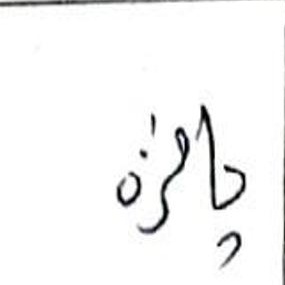 جائزة